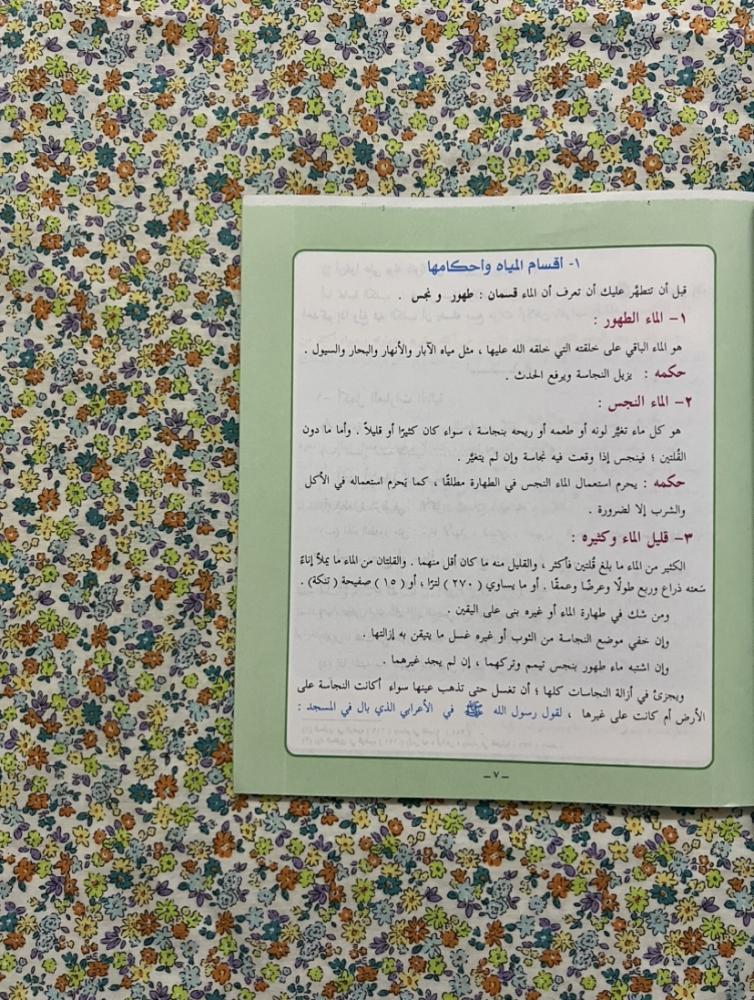 ١- أقسام المياه وأحكامها
قبل أن تتطهَّر عليك أن تعرف أن الماء قسمان : طهور و نجس .
١- الماء الطهور :
هو الماء الباقي على خلقته التي خلقه الله عليها ، مثل مياه الآبار والأنهار والبحار والسيول .
حكمه : يزيل النجاسة ويرفع الحدث .
٢- الماء النجس :
هو كل ماء تغيَّر لونه أو طعمه أو ريحه بنجاسة ، سواء كان كثيرًا أو قليلاً . وأما ما دون
القُلتين ؛ فينجس إذا وقعت فيه نجاسة وإن لم يتغيَّر .
حكمه : يحرم استعمال الماء النجس في الطهارة مطلقًا ، كما يَحرم استعماله في الأكل
والشرب إلا لضرورة .
٣- قليل الماء وكثيره :
الكثير من الماء ما بلغ قُلتين فأكثر ، والقليل منه ما كان أقل منهما . والقلتان من الماء ما يملأ إناءً
سَعته ذراع وربع طولًا وعرضًا وعمقًا . أو ما يساوي ( ٢٧٠ ) لترًا ، أو ( ١٥ ) صفيحة ( تنكة ) .
ومن شك في طهارة الماء أو غيره بنى على اليقين .
وإن خفي موضع النجاسة من الثوب أو غيره غسل ما يتيقن به إزالتها .
وإن اشتبه ماء طهور بنجس تيمم وتركهما ، إن لم يجد غيرهما .
ويجزئ في أزالة النجاسات كلها ؛ أن تغسل حتى تذهب عينها سواء أكانت النجاسة على
الأرض أم كانت على غيرها ، لقول رسول الله ﷺ في الأعرابي الذي بال في المسجد :
ـ ٧ ـ